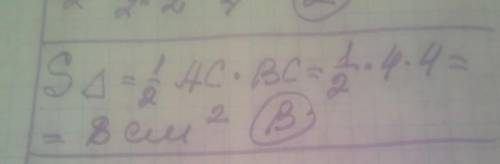 S△ = 1/2 AC · BC = 1/2 · 4 · 4 =
= 8 см² (В)